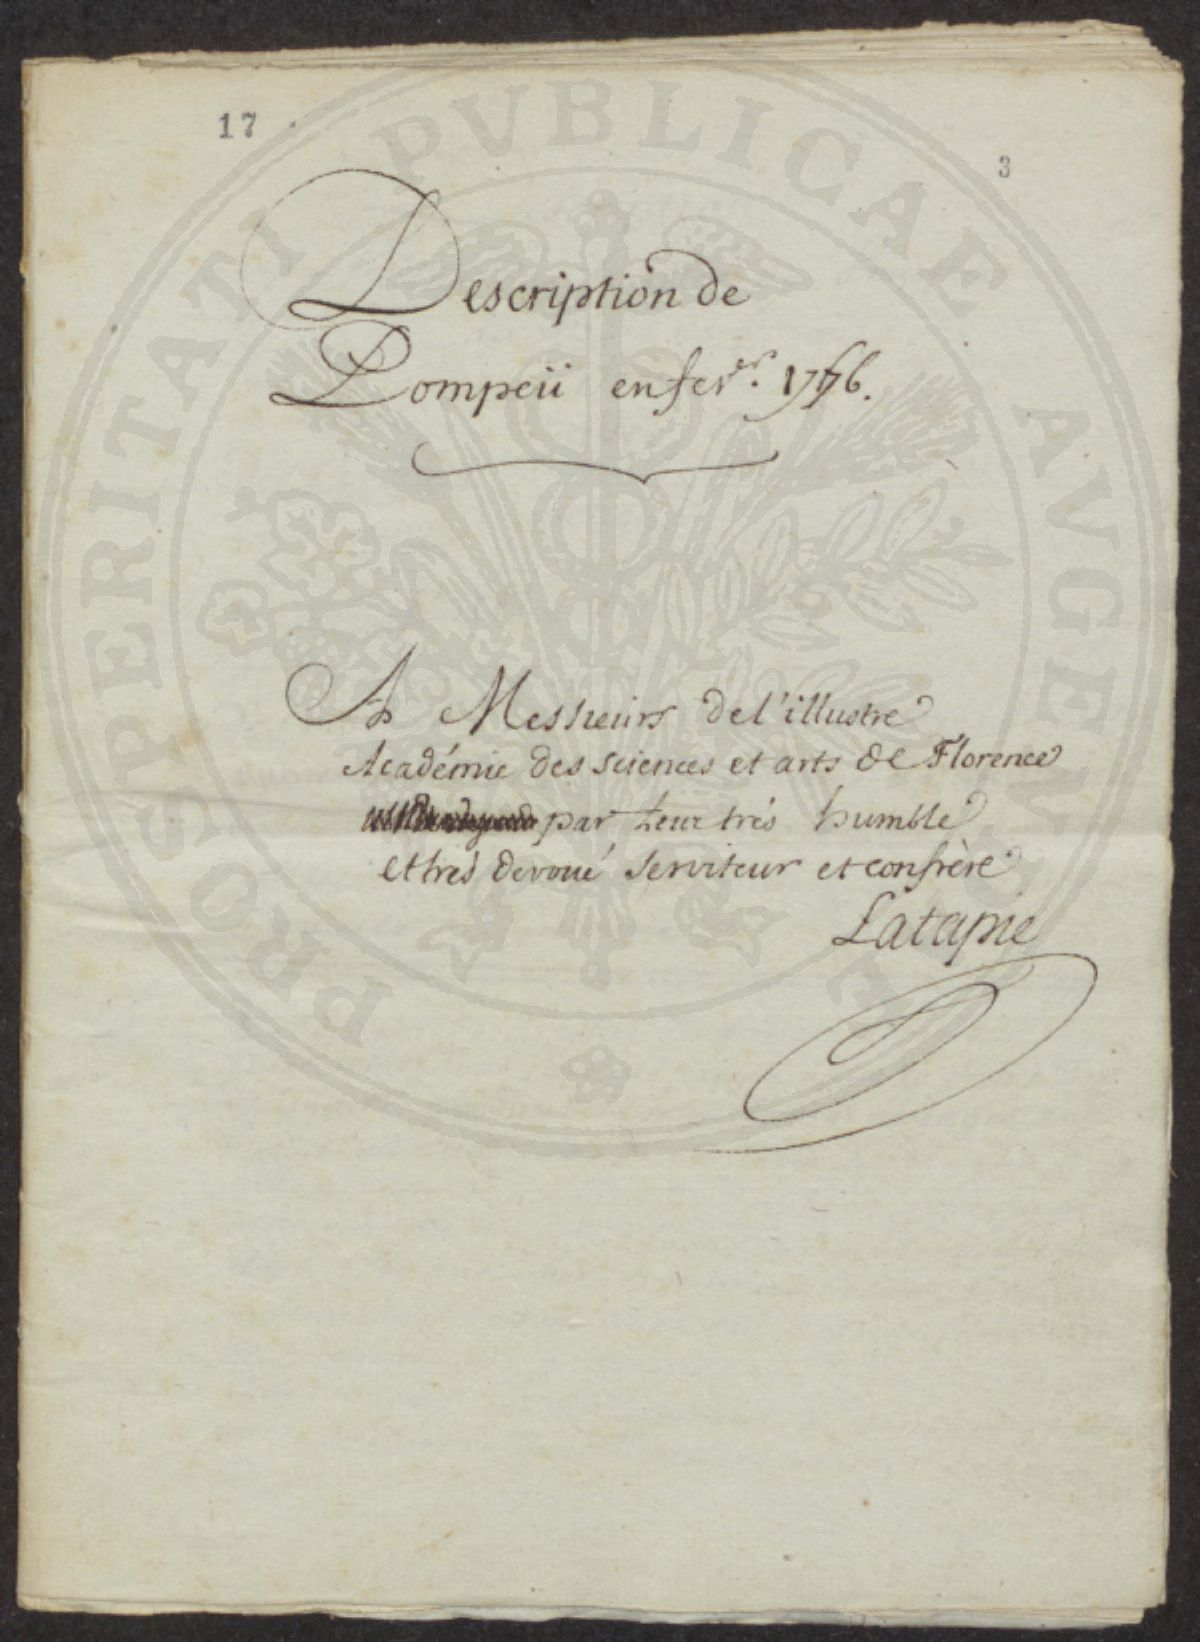 17
3
Description de
Pompeii en fev.er 1776.
A Messieurs de l'illustre
Académie des sciences et arts de Florence
par leur très humble
et tres devoué serviteur et confrère
Latapie
PROSPERITATI PVBLICAE AVGENDAE